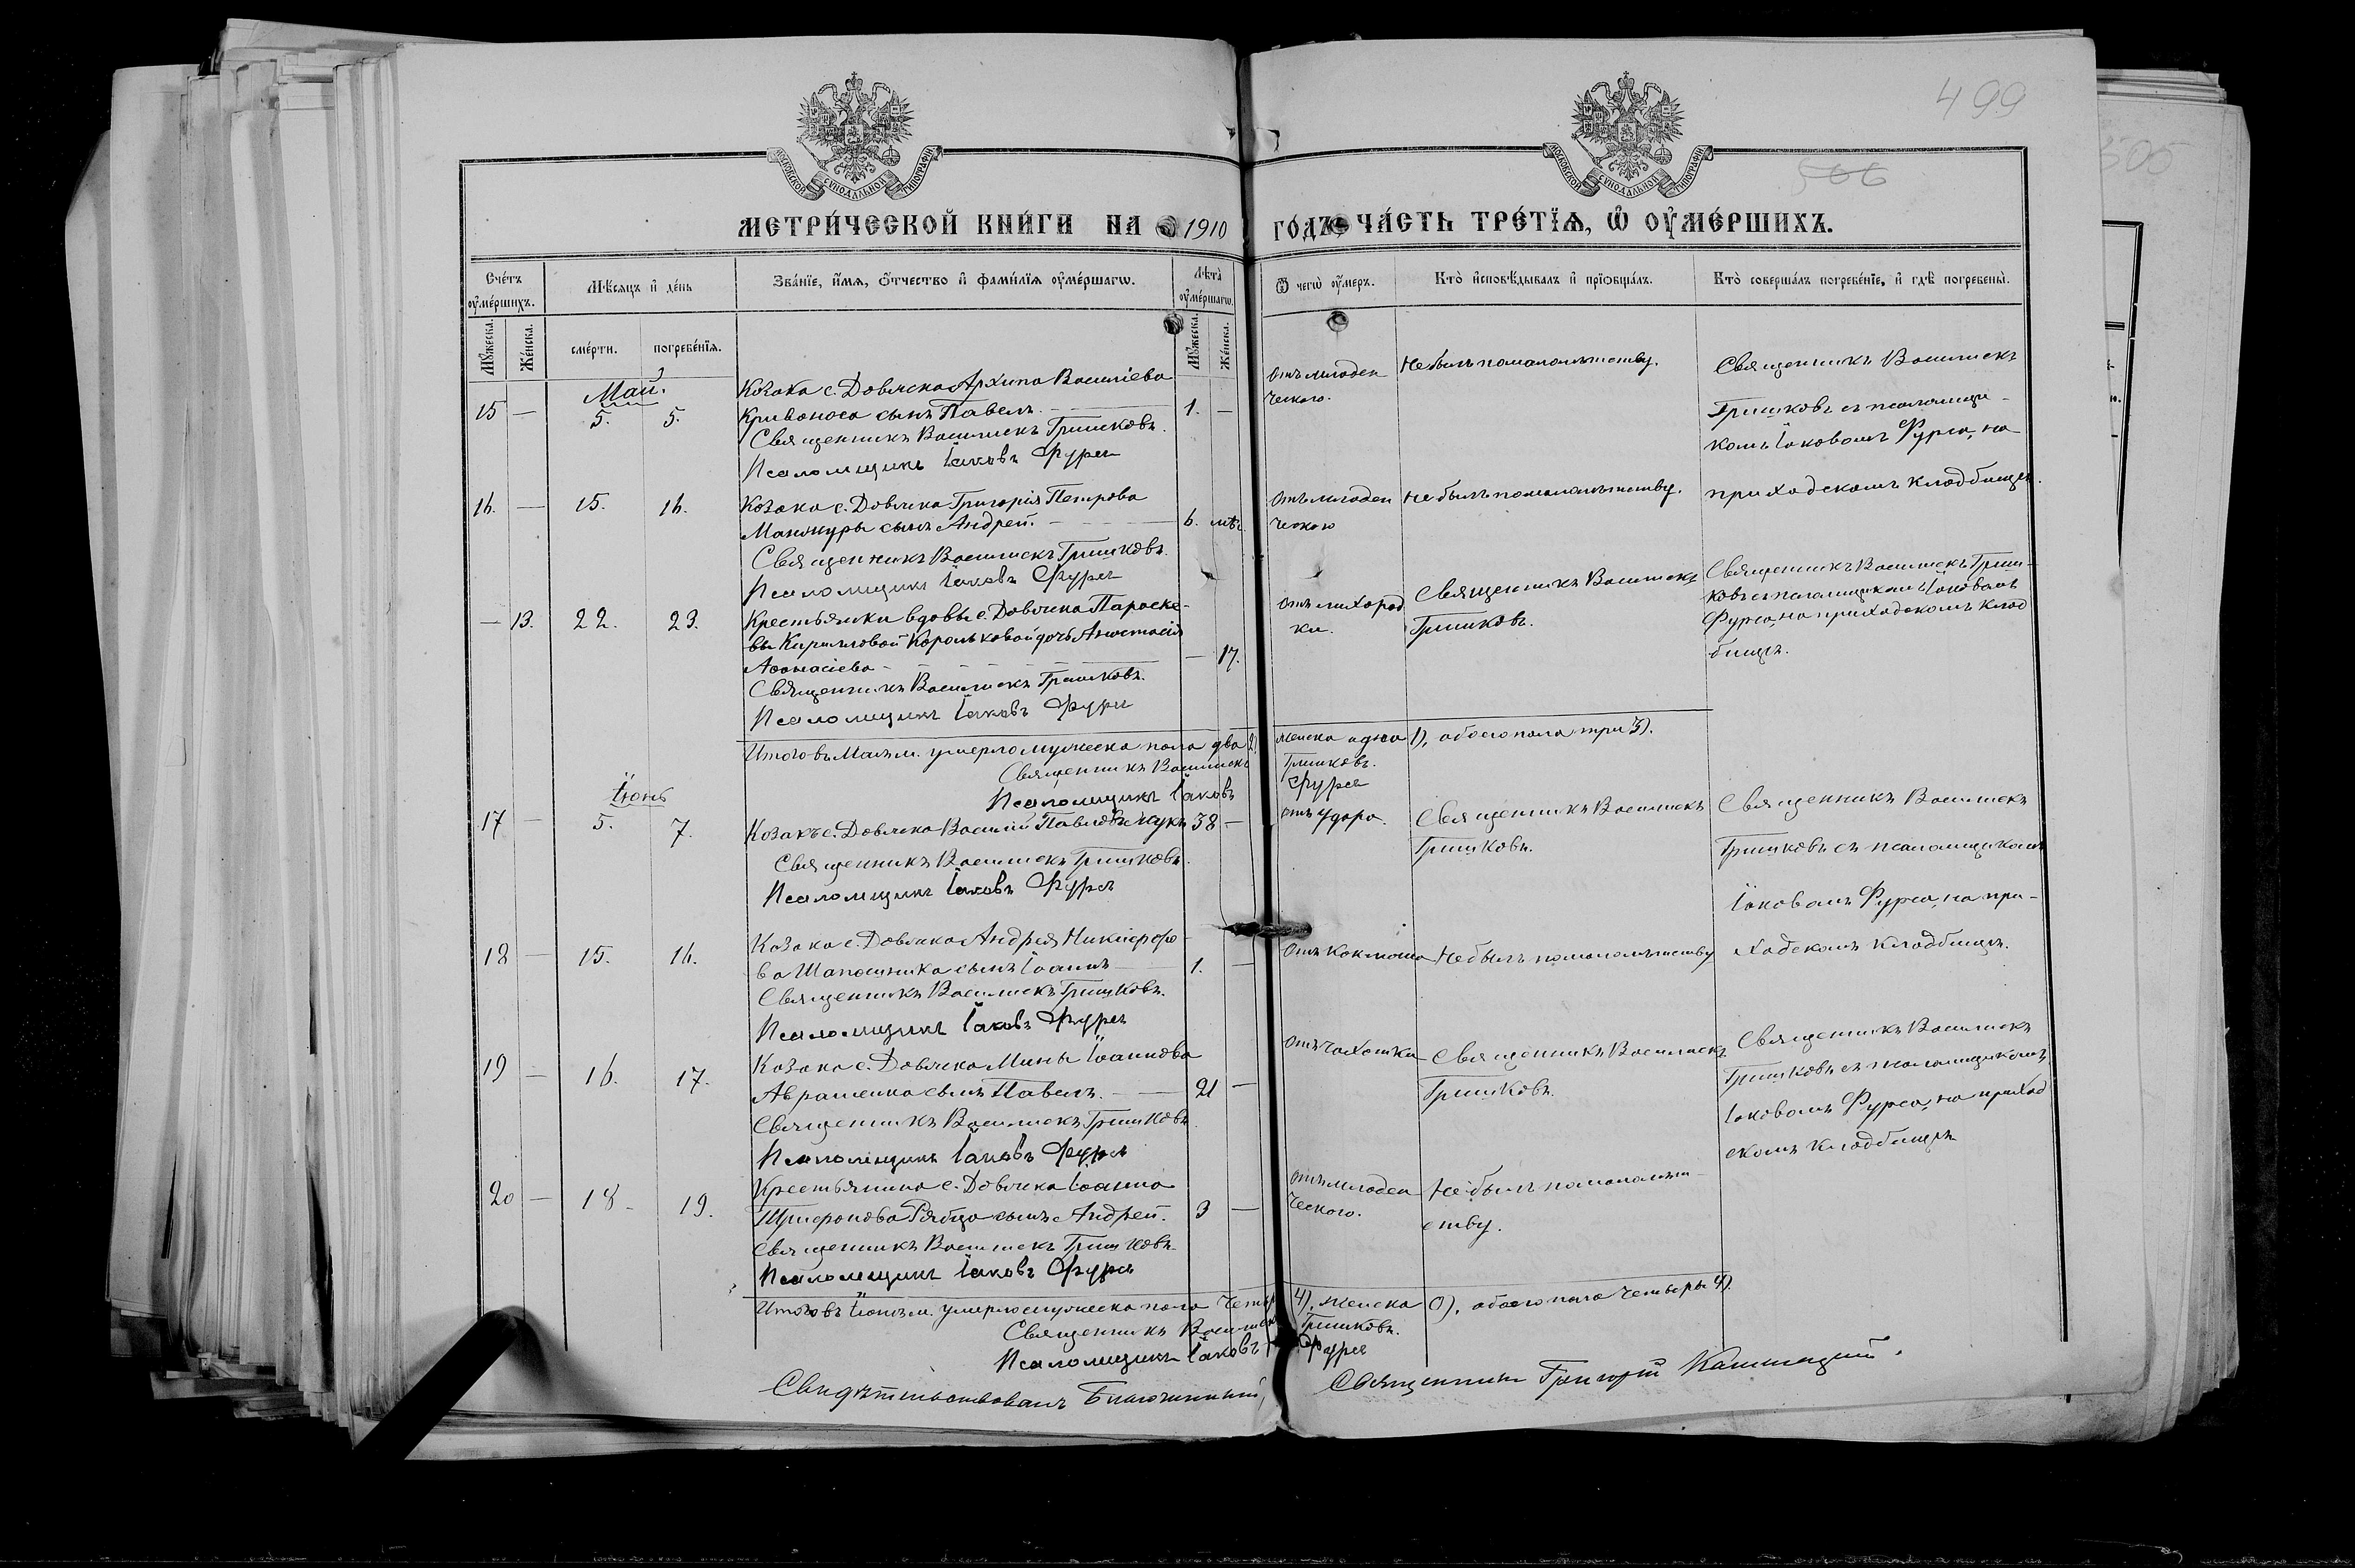 499
506
505
МОСКОВСКОЙ СУНОДАЛЬНОЙ ТИПОГРАФІИ
МОСКОВСКОЙ СУНОДАЛЬНОЙ ТИПОГРАФІИ
МЕТРИ́ЧЕСКОЙ КНИ́ГИ НА 1910 ГОДЪ, ЧА́СТЬ ТРЕ́ТЇѦ, Ѽ ОУ҆МЕ́РШИХЪ.
Счетъ оумершихъ.
Мѣсяцъ и день
Званїе, имя, отчество и фамилїя оумершагѡ.
Лѣта оумершагѡ.
Ѿ чегѡ оумеръ.
Кто исповѣдывалъ и прїобщалъ.
Кто совершалъ погребенїе, и гдѣ погребены.
Мужеска.
Женска.
смерти.
погребенїя.
Мужеска.
Женска.
Май.
15 — 5. 5.
Козака с. Довжика Архипа Василіева
Кривоноса сынъ Павелъ. 1. —
Священникъ Василискъ Гришковъ.
Псаломщикъ Іаковъ Фурса
Отъ младен
ческаго.
Не былъ по малолѣтству.
Священникъ Василискъ
Гришковъ съ псаломщи-
комъ Іаковомъ Фурса, на
приходскомъ кладбищѣ.
16. — 15. 16.
Козака с. Довжика Григорія Петрова
Манжуры сынъ Андрей. 6. мѣс.
Священникъ Василискъ Гришковъ.
Псаломщикъ Іаковъ Фурса
Отъ младен
ческаго
Не былъ по малолѣтству.
— 13. 22. 23.
Крестьянки вдовы с. Довжика Параске-
вы Кирилловой Корольковой дочь Анастасія
Аѳанасіева — 17.
Священникъ Василискъ Гришковъ.
Псаломщикъ Іаковъ Фурса
Отъ лихорад
ки.
Священникъ Василискъ
Гришковъ.
Священникъ Василискъ Гриш-
ковъ съ псаломщикомъ Іаковомъ
Фурса, на приходскомъ клад
бищѣ.
Итого въ Маѣ м. умерло мужеска пола два 2) женска одна 1), обоего пола три 3).
Священникъ Василискъ Гришковъ.
Псаломщикъ Іаковъ Фурса
Іюнь
17 — 5. 7.
Козакъ с. Довжика Василій Павловъ 38 —
Священникъ Василискъ Гришковъ.
Псаломщикъ Іаковъ Фурса
Отъ удара.
Священникъ Василискъ
Гришковъ.
Священникъ Василискъ
Гришковъ съ псаломщикомъ
Іаковомъ Фурса, на при-
ходскомъ кладбищѣ.
18 — 15. 16.
Козака с. Довжика Андрея Никифоро-
ва Шапошника сынъ Іоаннъ 1. —
Священникъ Василискъ Гришковъ.
Псаломщикъ Іаковъ Фурса
Отъ коклюша
Не былъ по малолѣтству
19 — 16. 17.
Козака с. Довжика Мины Іоаннова
Авраменка сынъ Павелъ. 21 —
Священникъ Василискъ Гришковъ
Псаломщикъ Іаковъ Фурса
Отъ чахотки
Священникъ Василискъ
Гришковъ.
Священникъ Василискъ
Гришковъ съ псаломщикомъ
Іаковомъ Фурса, на приход
скомъ кладбищѣ
20 — 18 19.
Крестьянина с. Довжика Іоанна
Трифонова Рябца сынъ Андрей. 3 —
Священникъ Василискъ Гришковъ.
Псаломщикъ Іаковъ Фурса
Отъ младен
ческаго.
Не былъ по малолѣт-
ству.
Итого въ Іюнѣ м. умерло мужеска пола четыре 4), женска 0), обоего пола четыре 4).
Священникъ Василискъ Гришковъ.
Псаломщикъ Іаковъ Фурса
Свидѣтельствовалъ Благочинный, Священникъ Григорій